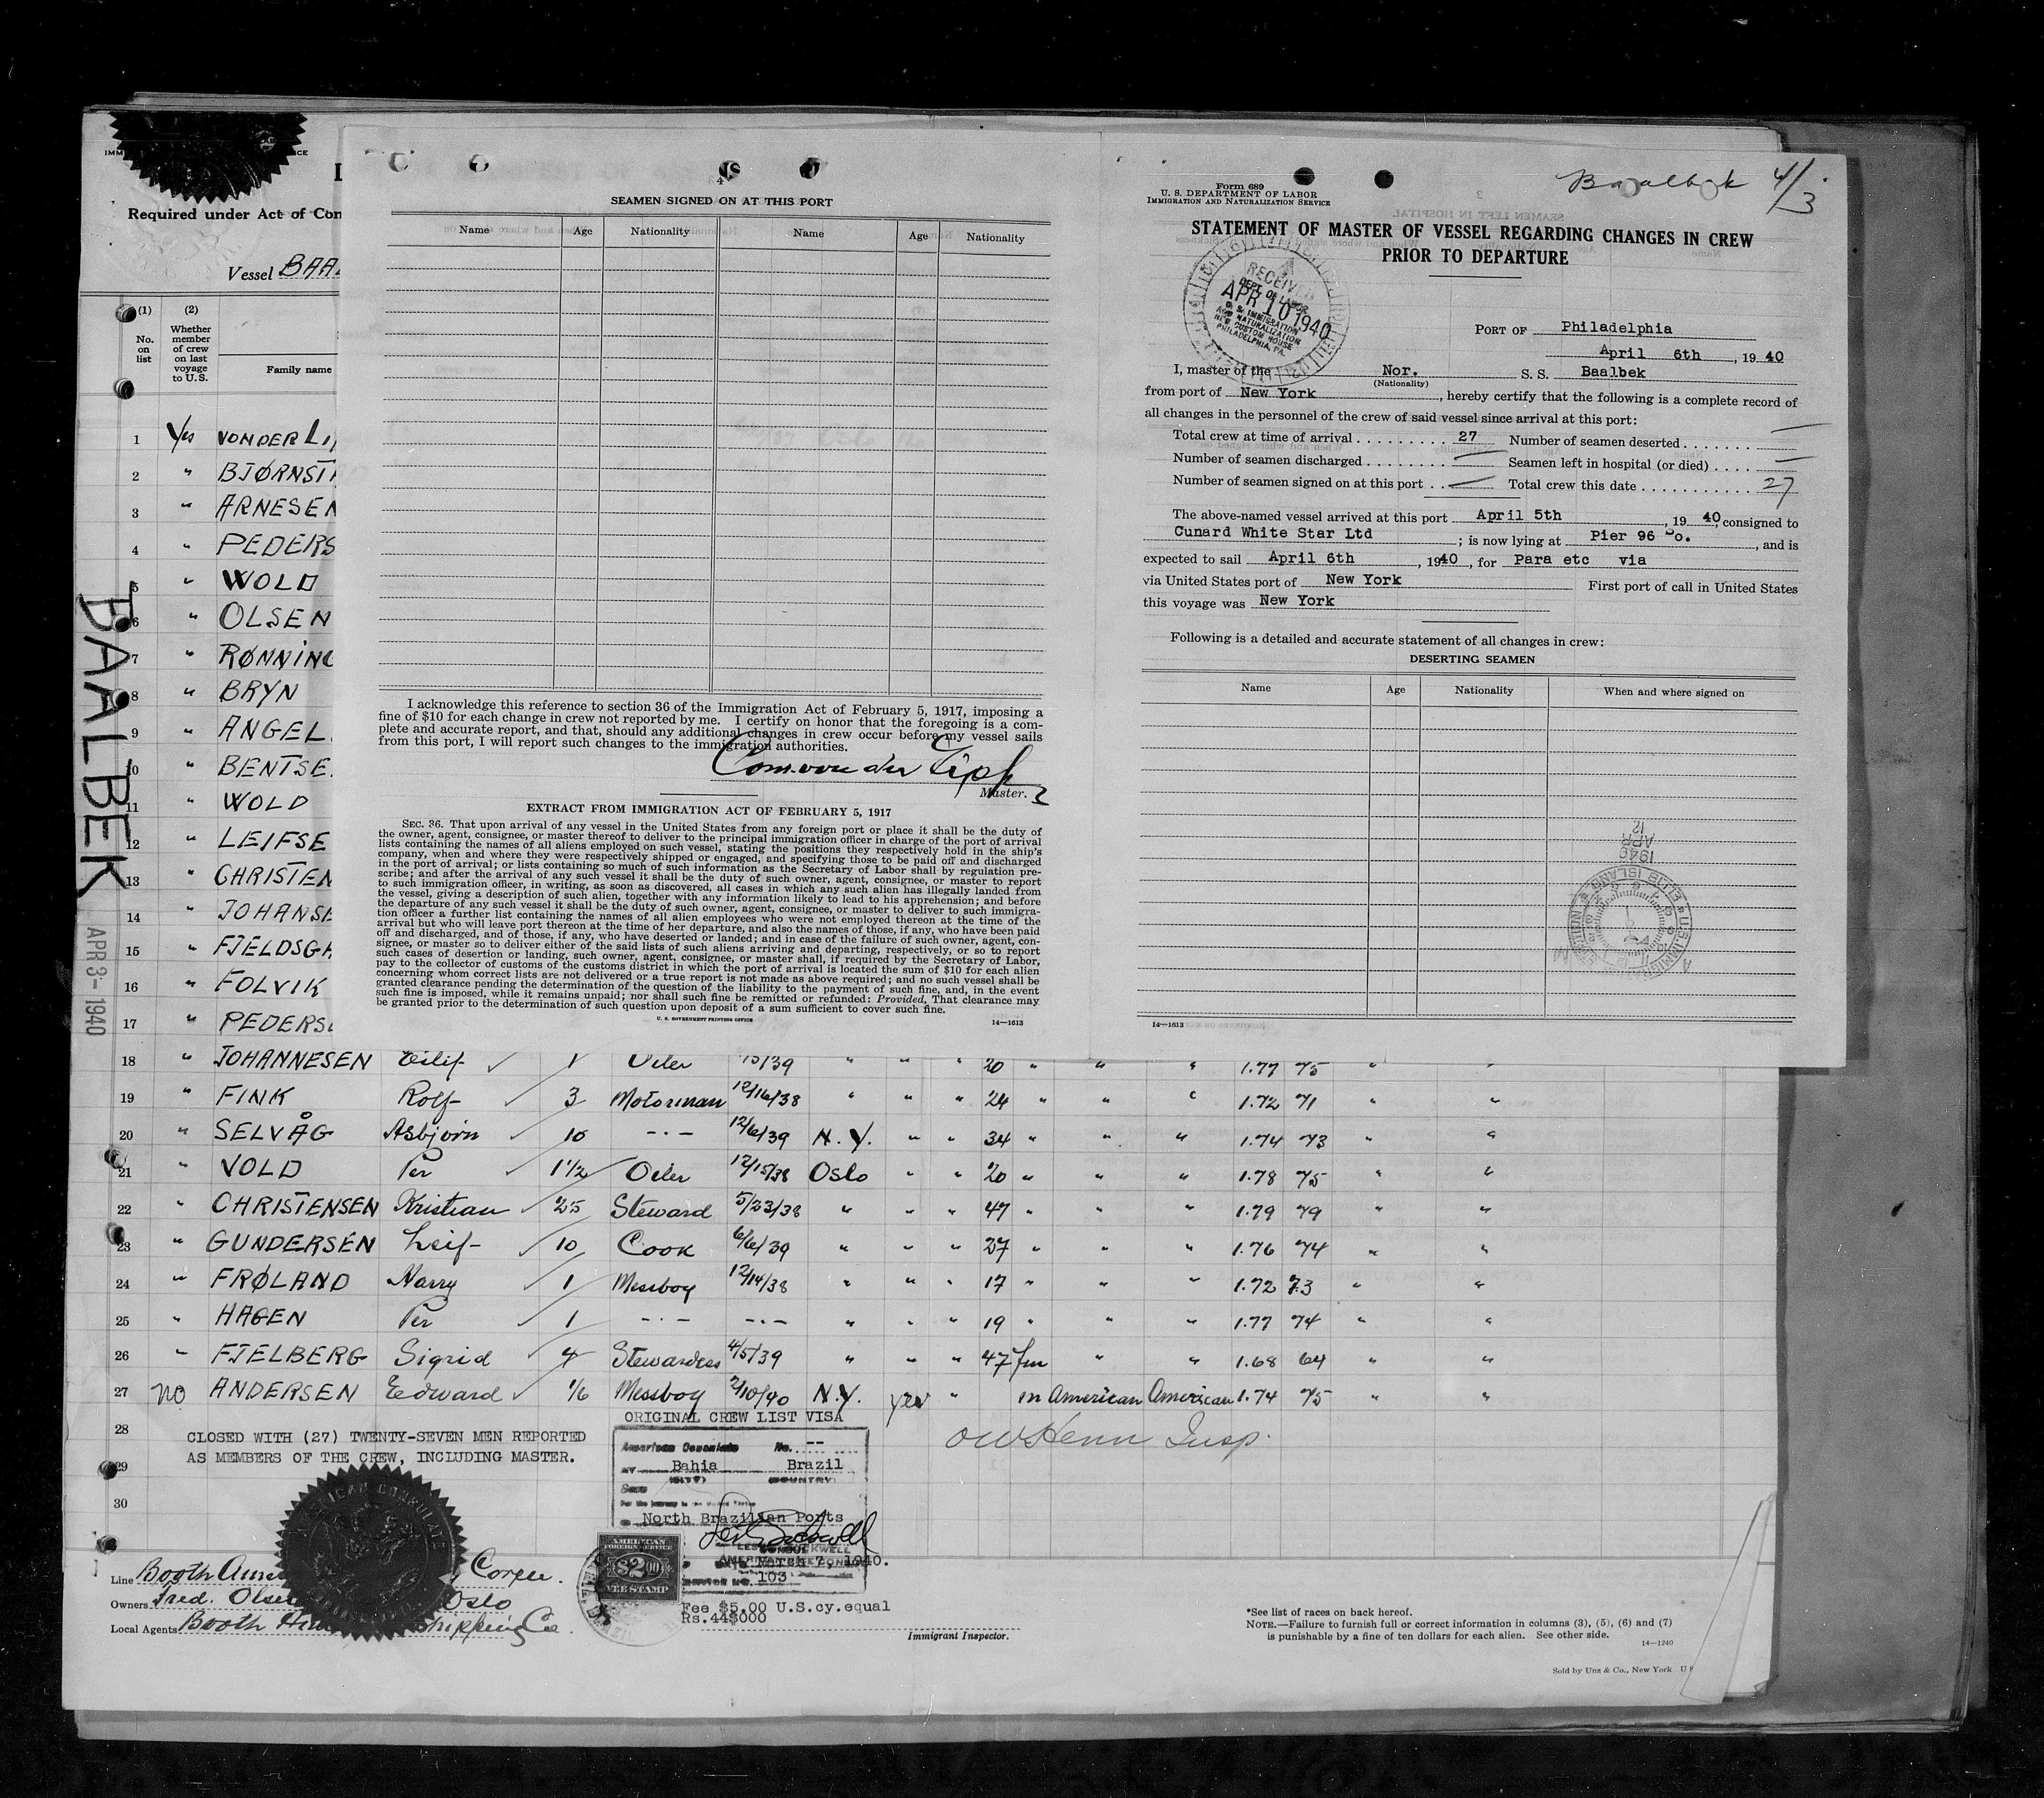 Required under Act of Con
Vessel BAAL
(1)
No. on list
(2)
Whether member of crew on last voyage to U.S.
Family name
1 Yes VONDER LI
2 " BJØRNST
3 " ARNESEN
4 " PEDERS
5 " WOLD
6 " OLSEN
7 " RØNNING
8 " BRYN
9 " ANGEL
10 " BENTSE
11 " WOLD
12 " LEIFSE
13 " CHRISTEN
14 " JOHANSE
15 " FJELDSGA
16 " FOLVIK
17 " PEDERSE
BAALBEK
APR 3- 1940
SEAMEN SIGNED ON AT THIS PORT
Name Age Nationality Name Age Nationality
I acknowledge this reference to section 36 of the Immigration Act of February 5, 1917, imposing a
fine of $10 for each change in crew not reported by me. I certify on honor that the foregoing is a com-
plete and accurate report, and that, should any additional changes in crew occur before my vessel sails
from this port, I will report such changes to the immigration authorities.
Master.
EXTRACT FROM IMMIGRATION ACT OF FEBRUARY 5, 1917
SEC. 36. That upon arrival of any vessel in the United States from any foreign port or place it shall be the duty of
the owner, agent, consignee, or master thereof to deliver to the principal immigration officer in charge of the port of arrival
lists containing the names of all aliens employed on such vessel, stating the positions they respectively hold in the ship's
company, when and where they were respectively shipped or engaged, and specifying those to be paid off and discharged
in the port of arrival; or lists containing so much of such information as the Secretary of Labor shall by regulation pre-
scribe; and after the arrival of any such vessel it shall be the duty of such owner, agent, consignee, or master to report
to such immigration officer, in writing, as soon as discovered, all cases in which any such alien has illegally landed from
the vessel, giving a description of such alien, together with any information likely to lead to his apprehension; and before
the departure of any such vessel it shall be the duty of such owner, agent, consignee, or master to deliver to such immigra-
tion officer a further list containing the names of all alien employees who were not employed thereon at the time of the
arrival but who will leave port thereon at the time of her departure, and also the names of those, if any, who have been paid
off and discharged, and of those, if any, who have deserted or landed; and in case of the failure of such owner, agent, con-
signee, or master so to deliver either of the said lists of such aliens arriving and departing, respectively, or so to report
such cases of desertion or landing, such owner, agent, consignee, or master shall, if required by the Secretary of Labor,
pay to the collector of customs of the customs district in which the port of arrival is located the sum of $10 for each alien
concerning whom correct lists are not delivered or a true report is not made as above required; and no such vessel shall be
granted clearance pending the determination of the question of the liability to the payment of such fine, and, in the event
such fine is imposed, while it remains unpaid; nor shall such fine be remitted or refunded: Provided, That clearance may
be granted prior to the determination of such question upon deposit of a sum sufficient to cover such fine.
U. S. GOVERNMENT PRINTING OFFICE 14—1613
Form 689
U. S. DEPARTMENT OF LABOR
IMMIGRATION AND NATURALIZATION SERVICE
Baalbek 4/3
STATEMENT OF MASTER OF VESSEL REGARDING CHANGES IN CREW
PRIOR TO DEPARTURE
RECEIVED
DEPT. OF LABOR
APR 10 1940
U. S. IMMIGRATION
AND NATURALIZATION
NEW CUSTOM HOUSE
PHILADELPHIA, PA.
PORT OF Philadelphia
April 6th, 1940
I, master of the Nor. S. S. Baalbek
(Nationality)
from port of New York, hereby certify that the following is a complete record of
all changes in the personnel of the crew of said vessel since arrival at this port:
Total crew at time of arrival . . . . . . . . . 27 Number of seamen deserted . . . . . . . —
Number of seamen discharged . . . . . . . — Seamen left in hospital (or died) . . . . —
Number of seamen signed on at this port . . — Total crew this date . . . . . . . . . . . 27
The above-named vessel arrived at this port April 5th, 1940, consigned to
Cunard White Star Ltd; is now lying at Pier 96 So., and is
expected to sail April 6th, 1940, for Para etc via
via United States port of New York First port of call in United States
this voyage was New York
Following is a detailed and accurate statement of all changes in crew:
DESERTING SEAMEN
Name Age Nationality When and where signed on
APR 12 1940
ELLIS ISLAND
14—1613
18 " JOHANNESEN Eilif 1 Oiler 15/39 " " " 20 " " " 1.77 75 " "
19 " FINK Rolf 3 Motorman 12/16/38 " " " 24 " " " 1.72 71 " "
20 " SELVÅG Asbjørn 10 -·- 12/6/39 N.Y. " " 34 " " " 1.74 73 " "
21 " VOLD Per 1 1/2 Oiler 12/15/38 Oslo " " 20 " " " 1.78 75 " "
22 " CHRISTENSEN Kristian 25 Steward 5/23/38 " " " 47 " " " 1.79 79 " "
23 " GUNDERSEN Leif 10 Cook 6/6/39 " " " 27 " " " 1.76 74 " "
24 " FRØLAND Harry 1 Messboy 12/14/38 " " " 17 " " " 1.72 73 " "
25 " HAGEN Per 1 -·- -·- " " " 19 " " " 1.77 74 " "
26 " FJELBERG Sigrid 4 Stewardess 4/5/39 " " " 47 fm " " 1.68 64 " "
27 no ANDERSEN Edward 1/6 Messboy 2/10/40 N.Y. yes " m American American 1.74 75 " "
28
29
30
CLOSED WITH (27) TWENTY-SEVEN MEN REPORTED
AS MEMBERS OF THE CREW, INCLUDING MASTER.
ORIGINAL CREW LIST VISA
American Consulate No. --
Bahia Brazil
(CITY) (COUNTRY)
North Brazilian Ports
March 7, 1940.
103
AMERICAN
FOREIGN SERVICE
$2.00
FEE STAMP
Fee $5.00 U.S.cy.equal
Rs.44$000
OW Henn Insp.
AMERICAN CONSULATE
Line Booth Amer Corpn.
Owners Fred. Olsen Oslo
Local Agents Booth Am Shipping Co.
Immigrant Inspector.
*See list of races on back hereof.
NOTE.—Failure to furnish full or correct information in columns (3), (5), (6) and (7)
is punishable by a fine of ten dollars for each alien. See other side.
14—1240
Sold by Unz & Co., New York